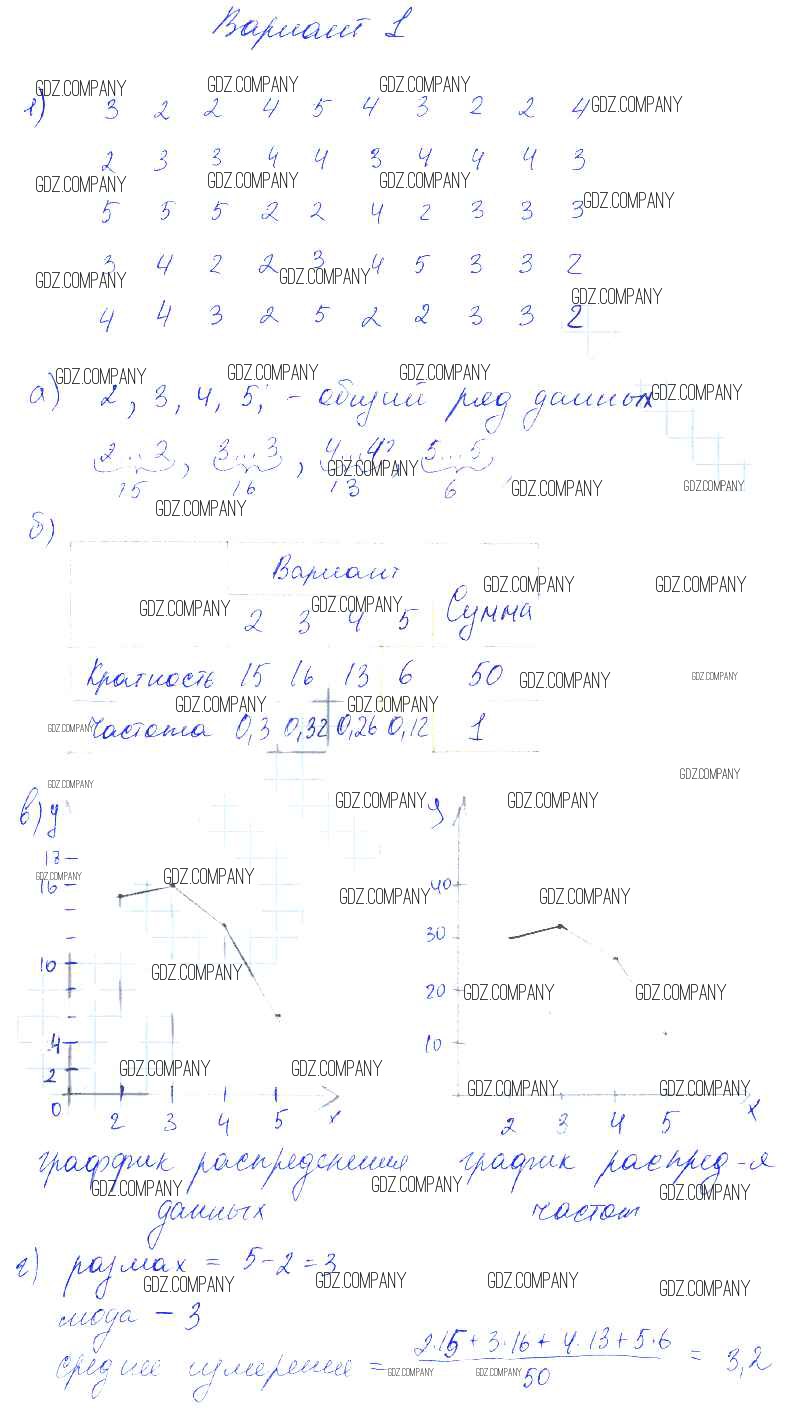 Вариант 1
GDZ.COMPANY GDZ.COMPANY GDZ.COMPANY
1) 3 2 2 4 5 4 3 2 2 4 GDZ.COMPANY
2 3 3 4 4 3 4 4 4 3
GDZ.COMPANY GDZ.COMPANY GDZ.COMPANY GDZ.COMPANY
5 5 5 2 2 4 2 3 3 3
3 4 2 2 3 4 5 3 3 2
GDZ.COMPANY GDZ.COMPANY GDZ.COMPANY
4 4 3 2 5 2 2 3 3 2
GDZ.COMPANY GDZ.COMPANY GDZ.COMPANY GDZ.COMPANY
а) 2, 3, 4, 5; - общий ряд данных
2...2, 3...3, 4...4, 5...5
GDZ.COMPANY
15 16 13 6 GDZ.COMPANY GDZ.COMPANY
GDZ.COMPANY
б)
Вариант
GDZ.COMPANY GDZ.COMPANY
GDZ.COMPANY GDZ.COMPANY
2 3 4 5 Сумма
Кратность 15 16 13 6 50 GDZ.COMPANY GDZ.COMPANY
GDZ.COMPANY GDZ.COMPANY
GDZ.COMPANY Частота 0,3 0,32 0,26 0,12 1
GDZ.COMPANY
GDZ.COMPANY
в) y GDZ.COMPANY y GDZ.COMPANY
18
GDZ.COMPANY GDZ.COMPANY
16 GDZ.COMPANY 40 GDZ.COMPANY
30
10 GDZ.COMPANY
20 GDZ.COMPANY GDZ.COMPANY
4 10
2 GDZ.COMPANY GDZ.COMPANY GDZ.COMPANY GDZ.COMPANY
0 2 3 4 5 x 2 3 4 5 x
граффик распределения график распред-я
GDZ.COMPANY GDZ.COMPANY GDZ.COMPANY
данных частот
г) размах = 5-2=3
GDZ.COMPANY GDZ.COMPANY GDZ.COMPANY GDZ.COMPANY
мода - 3
среднее измерение = 2·15+3·16+4·13+5·6 / 50 = 3,2
GDZ.COMPANY GDZ.COMPANY